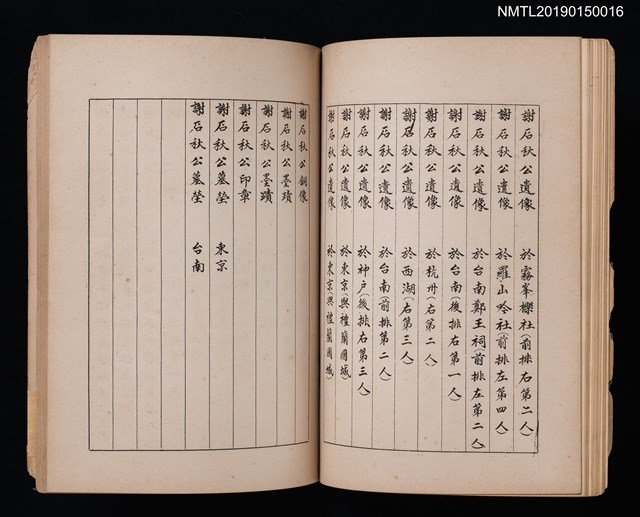 NMTL20190150016
謝石秋公遺像 於霧峯櫟社(前排右第二人)
謝石秋公遺像 於羅山吟社(前排左第四人)
謝石秋公遺像 於台南鄭王祠(前排左第二人)
謝石秋公遺像 於台南(後排右第一人)
謝石秋公遺像 於杭州(右第二人)
謝石秋公遺像 於西湖(右第三人)
謝石秋公遺像 於台南(前排第二人)
謝石秋公遺像 於神户(後排右第三人)
謝石秋公遺像 於東京(與禮蘭國城)
謝石秋公遺像 於東京(與禮蘭國城)
謝石秋公銅像
謝石秋公墨蹟
謝石秋公墨蹟
謝石秋公印章
謝石秋公墓塋 東京
謝石秋公墓塋 台南